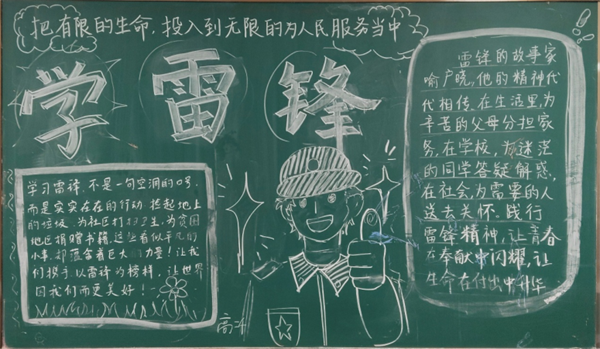 把有限的生命,投入到无限的为人民服务当中
学雷锋
学习雷锋,不是一句空洞的口号,
而是实实在在的行动.捡起地上
的垃圾,为社区打扫卫生,为贫困
地区捐赠书籍,这些看似平凡的
小事,却蕴含着巨大的力量!让我
们携手以雷锋为榜样,让世界
因我们而更美好!
雷锋的故事家
喻户晓,他的精神代
代相传.在生活里,为
辛苦的父母分担家
务,在学校,为迷茫
的同学答疑解惑,
在社会,为需要的人
送去关怀.践行
雷锋精神,让青春
在奉献中闪耀,让
生命在付出中升华